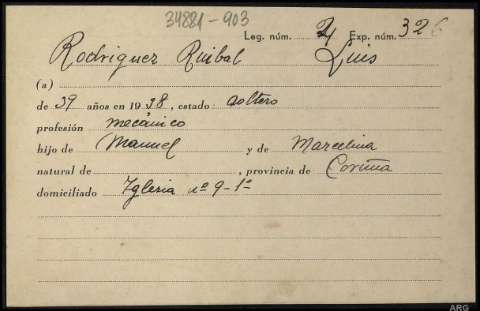 34881-903
Leg. núm. 21 Exp. núm. 326
Rodriguez Ruibal Luis
(a)
de 39 años en 1938, estado: soltero
profesión mecánico
hijo de Manuel y de Marcelina
natural de , provincia de Coruña
domiciliado Iglesia nº 9-1º
ARG